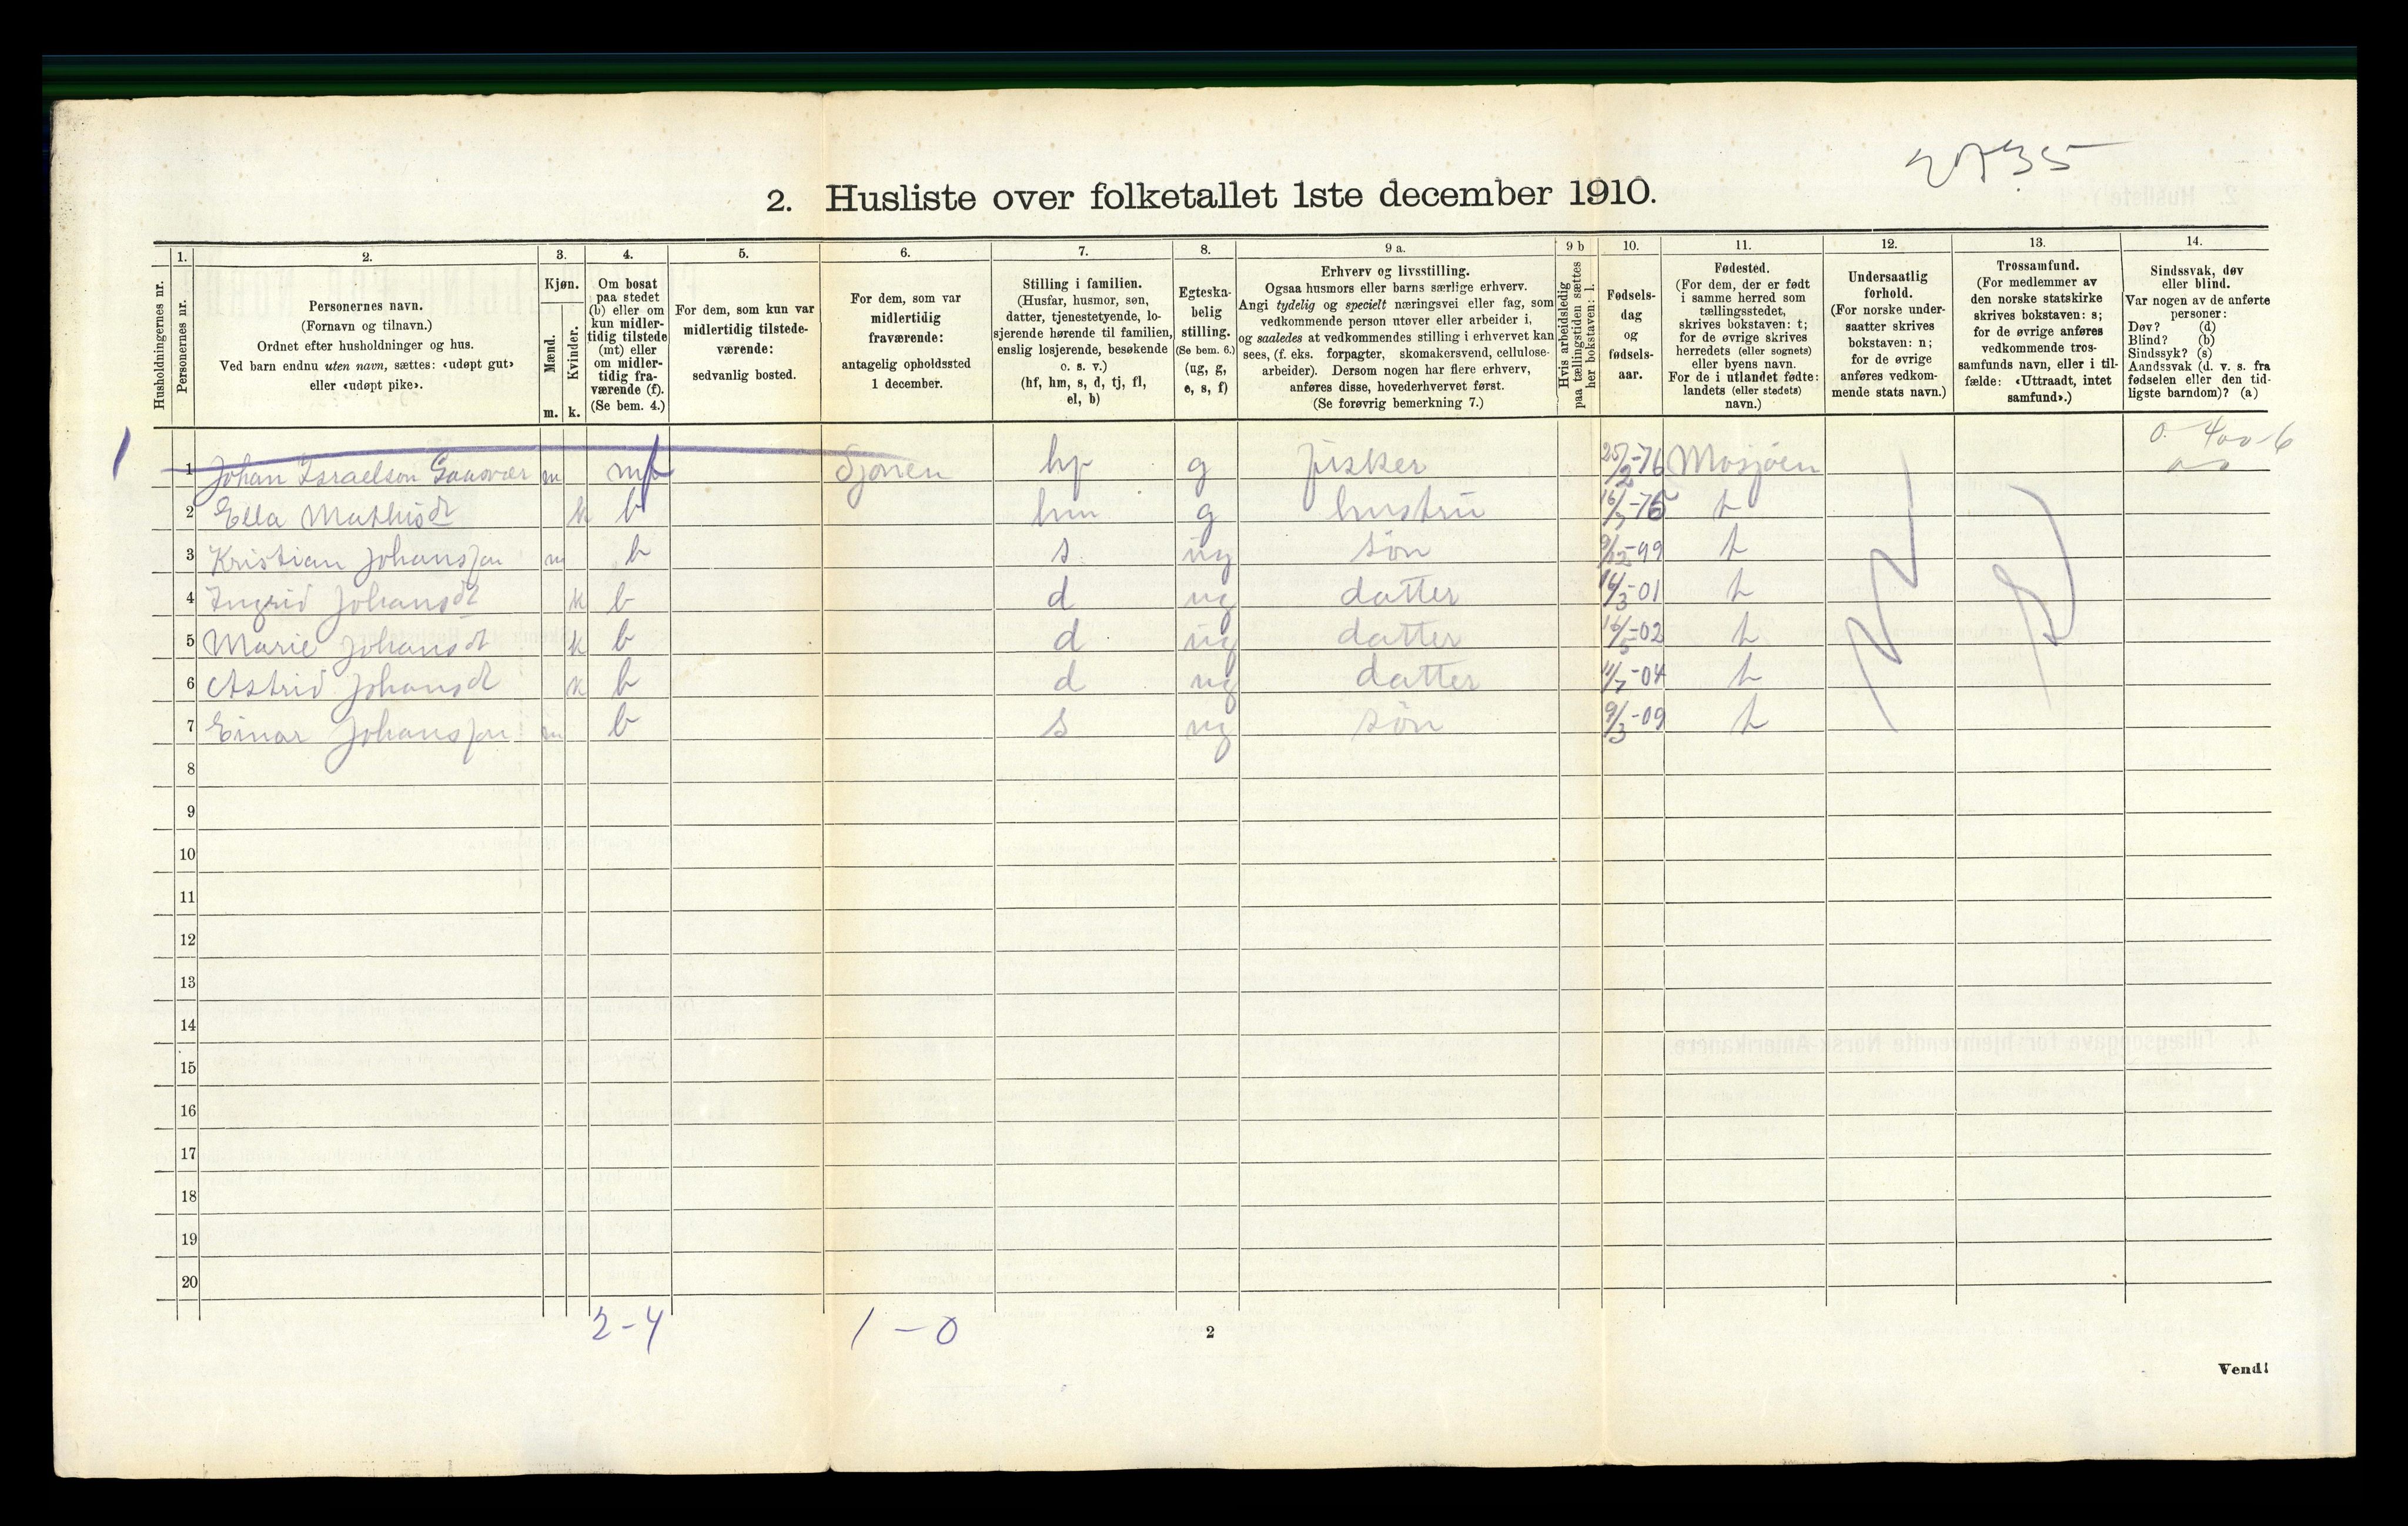 2735
2. Husliste over folketallet 1ste december 1910.
Husholdningernes nr.
1. Personernes nr.
2. Personernes navn.
(Fornavn og tilnavn.)
Ordnet efter husholdninger og hus.
Ved barn endnu uten navn, sættes: «udøpt gut»
eller «udøpt pike».
3. Kjøn.
Mænd. m.
Kvinder. k.
4. Om bosat
paa stedet
(b) eller om
kun midler-
tidig tilstede
(mt) eller
om midler-
tidig fra-
værende (f).
(Se bem. 4.)
5. For dem, som kun var
midlertidig tilstede-
værende:
sedvanlig bosted.
6. For dem, som var
midlertidig
fraværende:
antagelig opholdssted
1 december.
7. Stilling i familien.
(Husfar, husmor, søn,
datter, tjenestetyende, lo-
sjerende hørende til familien,
enslig losjerende, besøkende
o. s. v.)
(hf, hm, s, d, tj, fl,
el, b)
8. Egteska-
belig
stilling.
(Se bem. 6.)
(ug, g,
e, s, f)
9 a. Erhverv og livsstilling.
Ogsaa husmors eller barns særlige erhverv.
Angi tydelig og specielt næringsvei eller fag, som
vedkommende person utøver eller arbeider i,
og saaledes at vedkommendes stilling i erhvervet kan
sees, (f. eks. forpagter, skomakersvend, cellulose-
arbeider). Dersom nogen har flere erhverv,
anføres disse, hovederhvervet først.
(Se forøvrig bemerkning 7.)
9 b Hvis arbeidsledig
paa tællingstiden sættes
her bokstaven: l.
10. Fødsels-
dag
og
fødsels-
aar.
11. Fødested.
(For dem, der er født
i samme herred som
tællingsstedet,
skrives bokstaven: t;
for de øvrige skrives
herredets (eller sognets)
eller byens navn.
For de i utlandet fødte:
landets (eller stedets)
navn.)
12. Undersaatlig
forhold.
(For norske under-
saatter skrives
bokstaven: n;
for de øvrige
anføres vedkom-
mende stats navn.)
13. Trossamfund.
(For medlemmer av
den norske statskirke
skrives bokstaven: s;
for de øvrige anføres
vedkommende tros-
samfunds navn, eller i til-
fælde: «Uttraadt, intet
samfund».)
14. Sindssvak, døv
eller blind.
Var nogen av de anførte
personer:
Døv? (d)
Blind? (b)
Sindssyk? (s)
Aandssvak (d. v. s. fra
fødselen eller den tid-
ligste barndom)? (a)
1 1 Johan Israelson Gaasvær m mf Sjonen hf g fisker 25/2-76 Mosjøen
2 Ella Mathisdt k b hm g hustru 16/7-75 t
3 Kristian Johanssen m b s ug søn 9/12-99 t
4 Ingrid Johansdt k b d ug datter 14/3-01 t
5 Marie Johansdt k b d ug datter 16/5-02 t
6 Astrid Johansdt k b d ug datter 11/7-04 t
7 Einar Johanssen m b s ug søn 9/3-09 t
n
s
8
9
10
11
12
13
14
15
16
17
18
19
20
2-4 1-0
2
Vend!